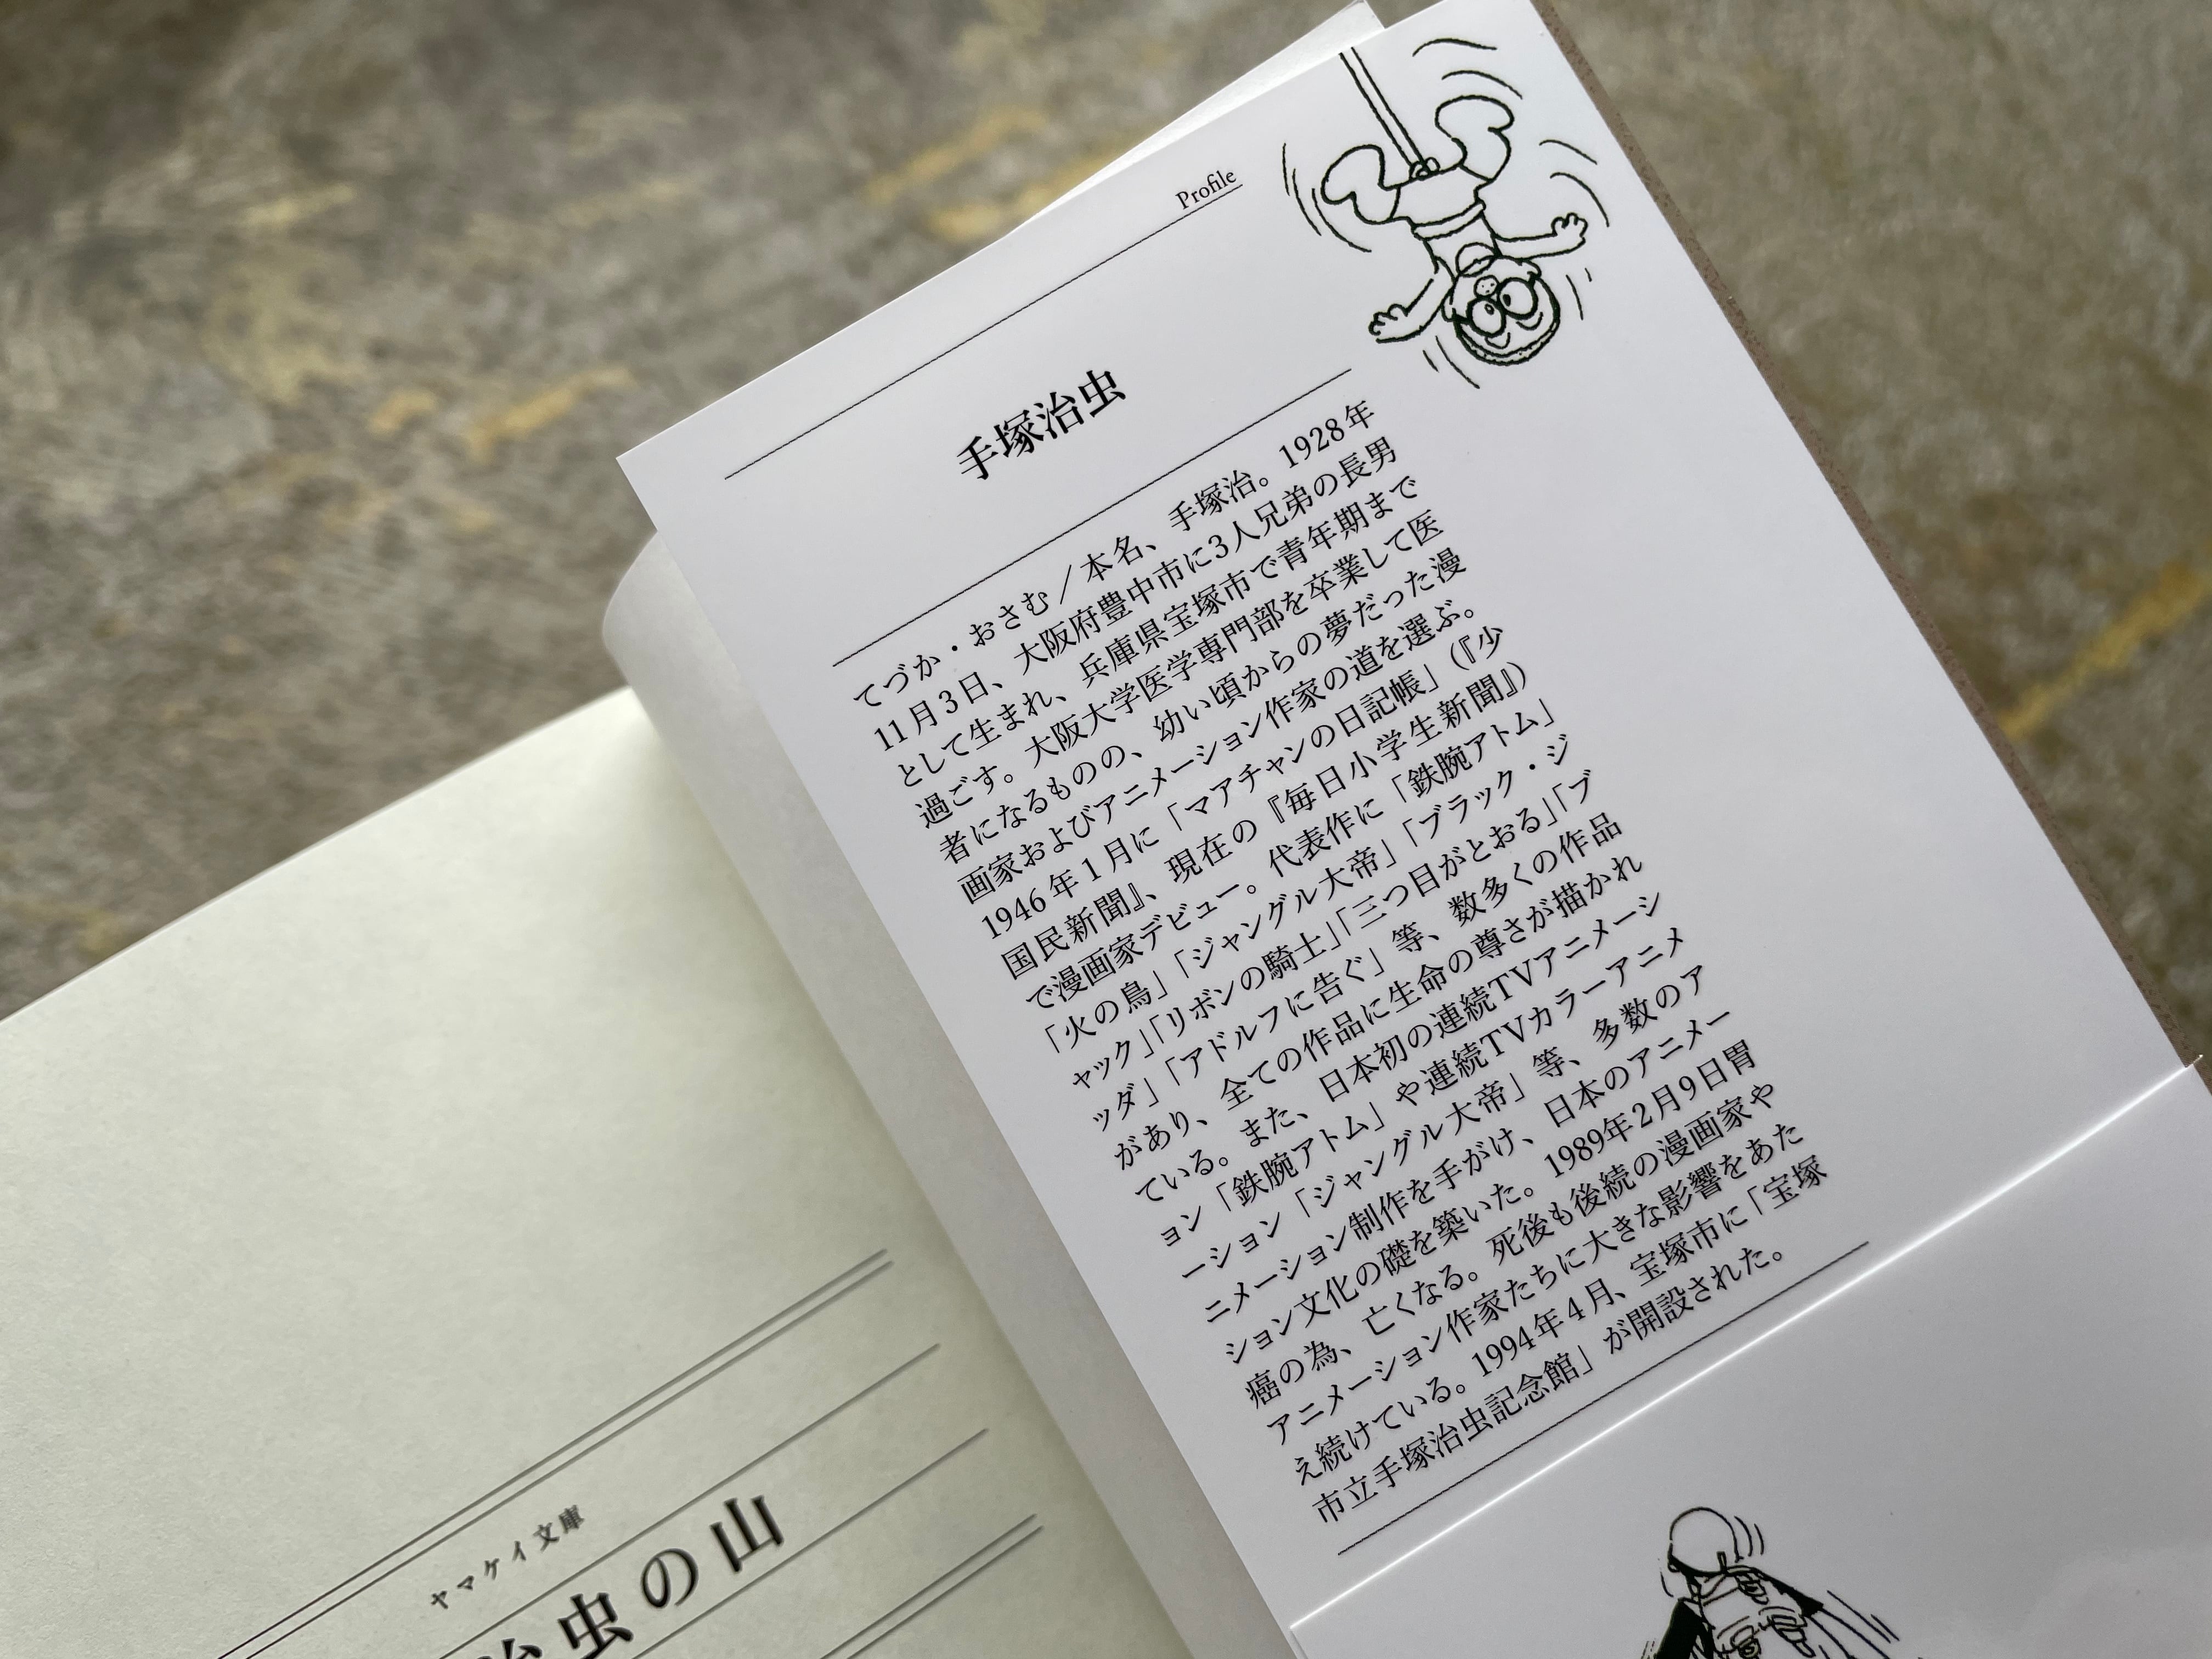 Profile
手塚治虫
てづか・おさむ／本名、手塚治。1928年
11月3日、大阪府豊中市に3人兄弟の長男
として生まれ、兵庫県宝塚市で青年期まで
過ごす。大阪大学医学専門部を卒業して医
者になるものの、幼い頃からの夢だった漫
画家およびアニメーション作家の道を選ぶ。
1946年1月に「マアチャンの日記帳」（『少
国民新聞』、現在の『毎日小学生新聞』）
で漫画家デビュー。代表作に「鉄腕アトム」
「火の鳥」「ジャングル大帝」「ブラック・ジ
ャック」「リボンの騎士」「三つ目がとおる」「ブ
ッダ」「アドルフに告ぐ」等、数多くの作品
があり、全ての作品に生命の尊さが描かれ
ている。また、日本初の連続TVアニメーシ
ョン「鉄腕アトム」や連続TVカラーアニメ
ーション「ジャングル大帝」等、多数のア
ニメーション制作を手がけ、日本のアニメー
ション文化の礎を築いた。1989年2月9日胃
癌の為、亡くなる。死後も後続の漫画家や
アニメーション作家たちに大きな影響をあた
え続けている。1994年4月、宝塚市に「宝塚
市立手塚治虫記念館」が開設された。
ヤマケイ文庫
治虫の山